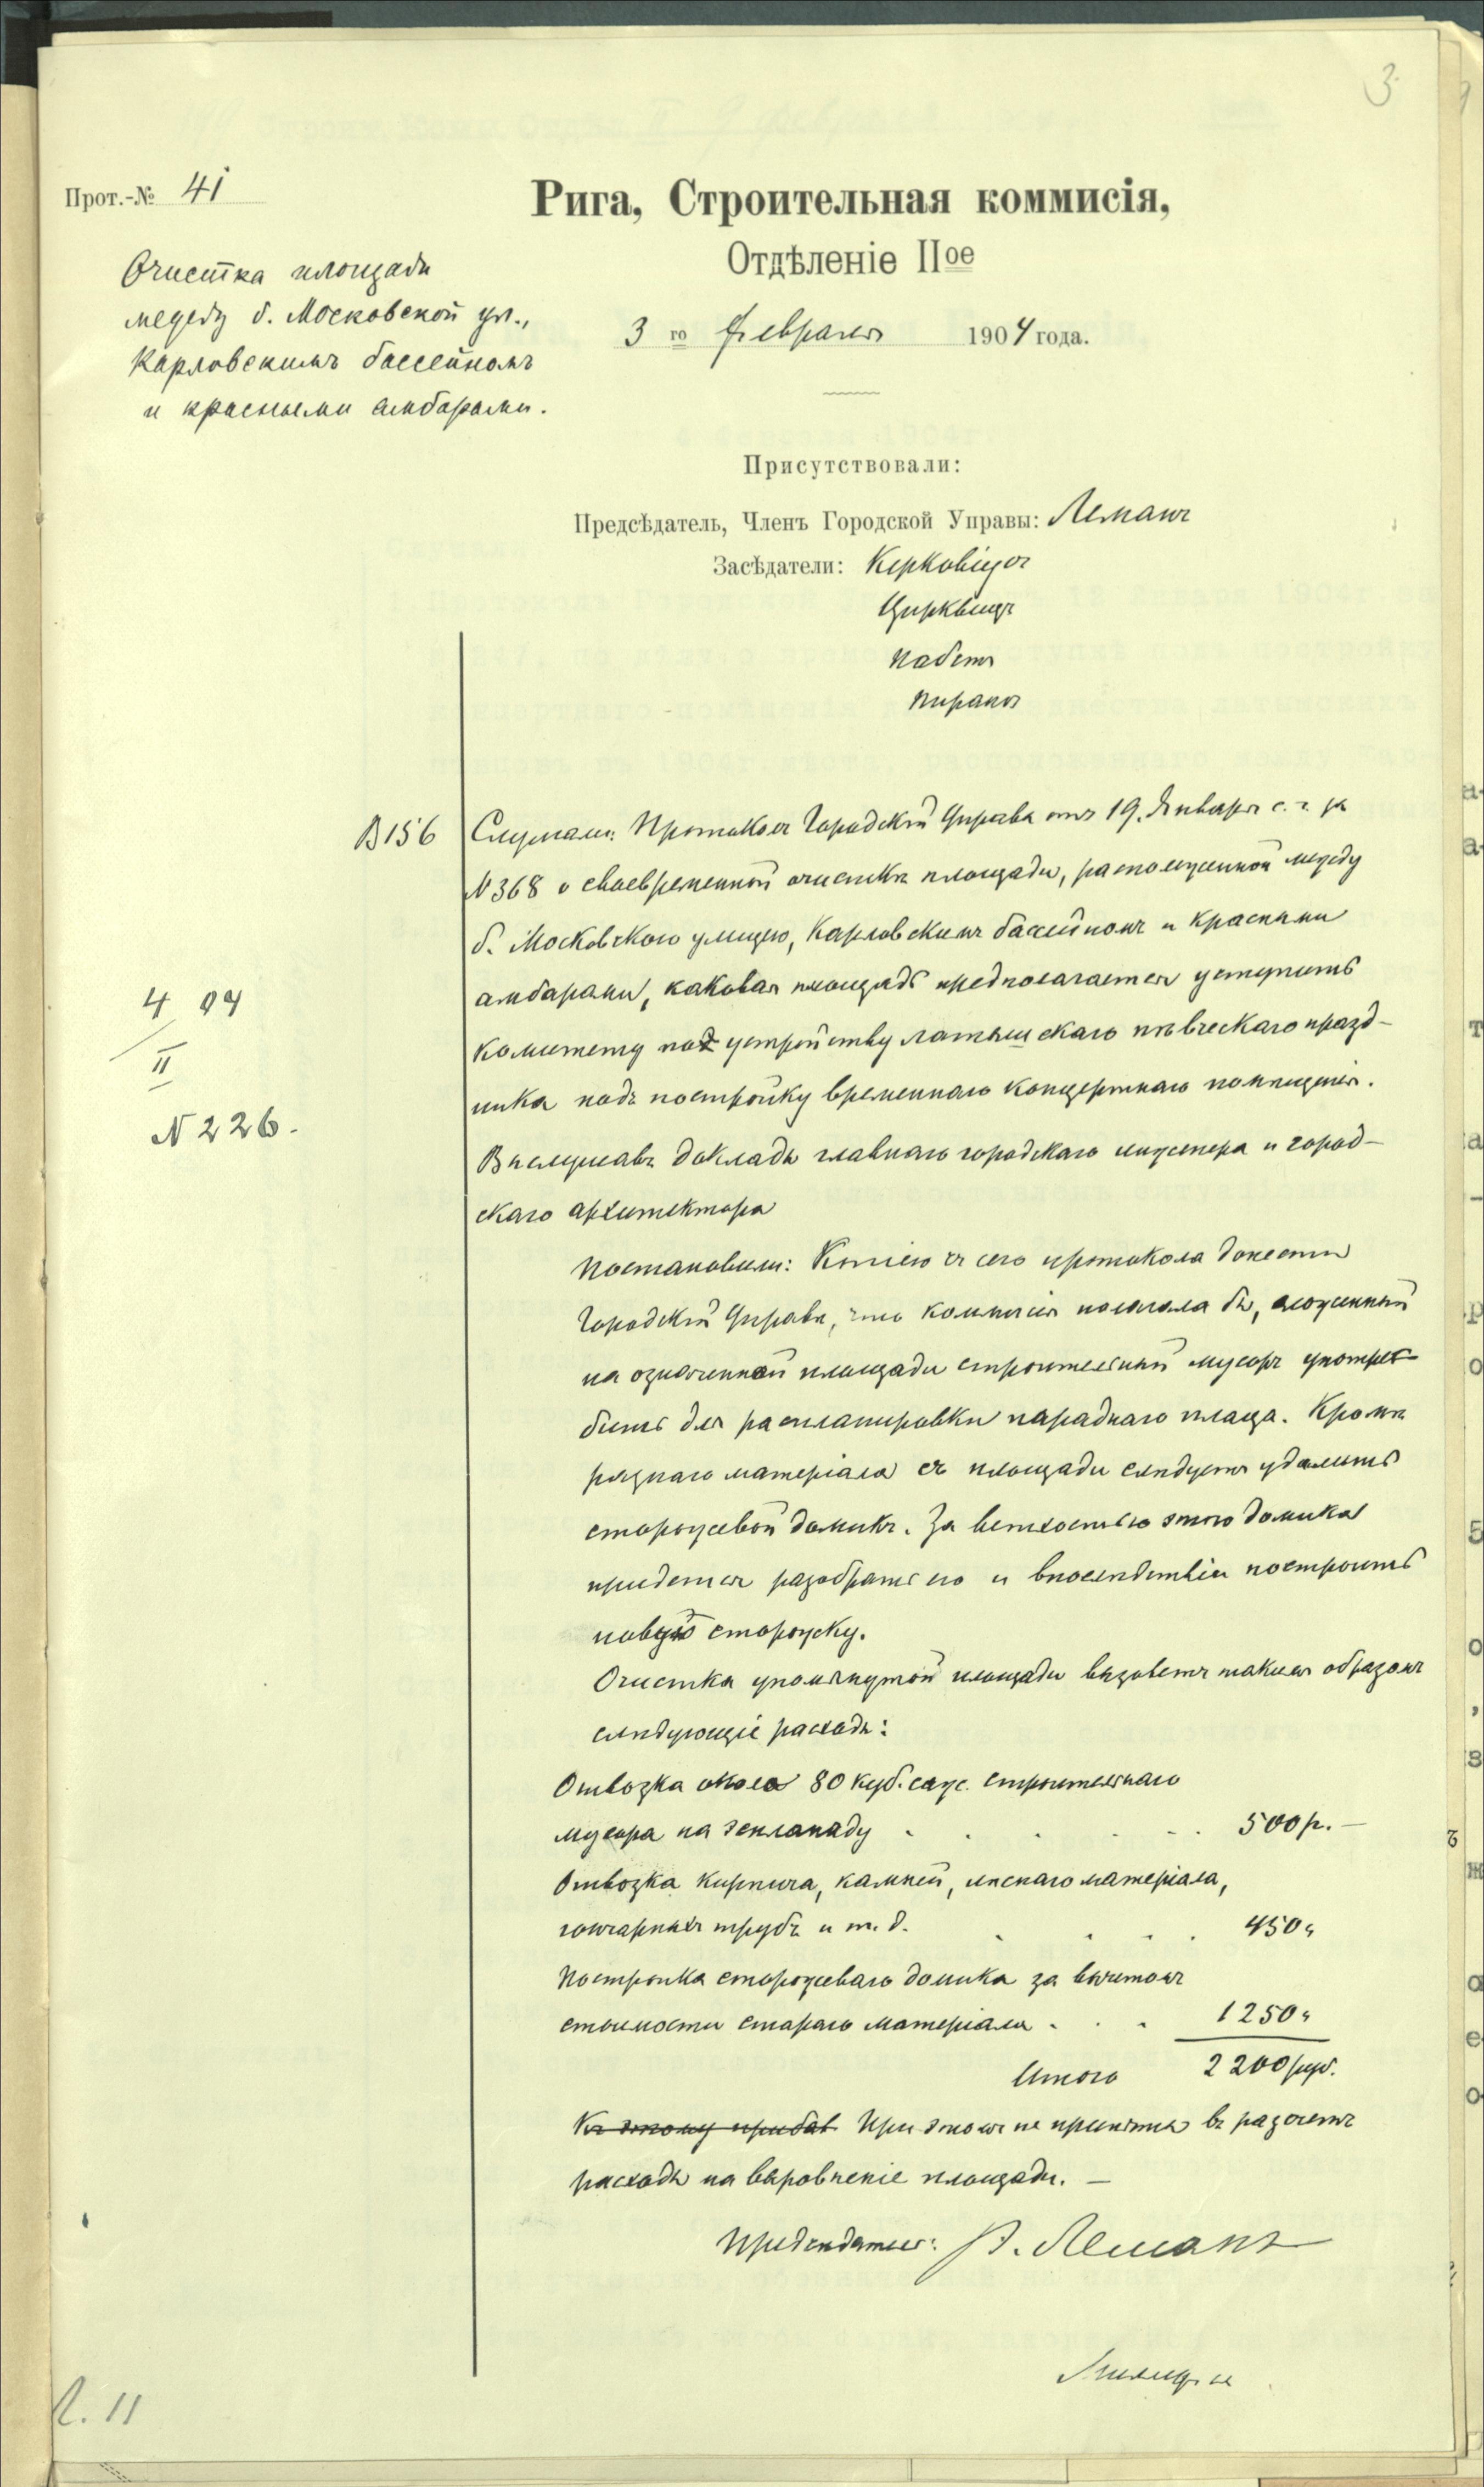 3
Прот.-№ 41
Рига, Строительная коммисія,
Отдѣленіе IIое
3 го Февраля 1904 года.
Очистка площади
между б. Московской ул.,
Карловскимъ бассейномъ
и красными амбарами.
Присутствовали:
Предсѣдатель, Членъ Городской Управы: Леманъ
Засѣдатели: Керковіусъ
Цирквицъ
Пабстъ
Пирангъ
B156
Слушали: Протоколъ Городской Управы отъ 19. Января с. г. за
N 368 о своевременной очисткѣ площади, расположенной между
б. Московскою улицею, Карловскимъ бассейномъ и красными
амбарами, каковая площадь предполагается уступить
комитету по устройству латышскаго пѣвческаго празд-
ника подъ постройку временнаго концертнаго помѣщенія.
Выслушавъ доклады главнаго городскаго инженера и город-
скаго архитектора
4 04
II
N 226.
Постановили: Копіею съ сего протокола донести
Городской Управѣ, что коммисія полагала бы, сложенный
на означенной площади строительный мусоръ употре-
бить для распланировки параднаго плаца. Кромѣ
разнаго матеріала съ площади слѣдуетъ удалить
сторожевой домикъ. За ветхостью этого домика
придется разобрать его и впослѣдствіи построить
новую сторожку.
Очистка упомянутой площади вызоветъ такимъ образомъ
слѣдующіе расходы:
Отвозка около 80 куб. саж. строительнаго
мусора на эспланаду . . . . . . 500 р. —
Отвозка кирпича, камней, лѣснаго матеріала,
гончарныхъ трубъ и т. д. . . . . 450 "
Постройка сторожеваго домика за вычетомъ
стоимости стараго матеріала . . . 1250 "
Итого 2200 руб.
Къ этому прибав При этомъ не приняты въ разсчетъ
расходы на выровненіе площади. —
Предсѣдатель: А. Леманъ
л. 11